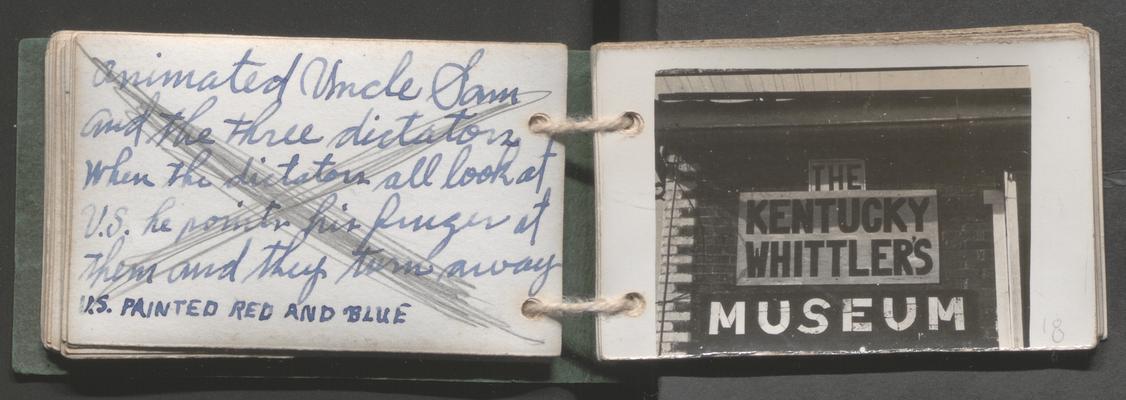 animated Uncle Sam
and the three dictators
when the dictators all look at
U.S. he points his finger at
them and they turn away
U.S. PAINTED RED AND BLUE
THE
KENTUCKY
WHITTLER'S
MUSEUM
18